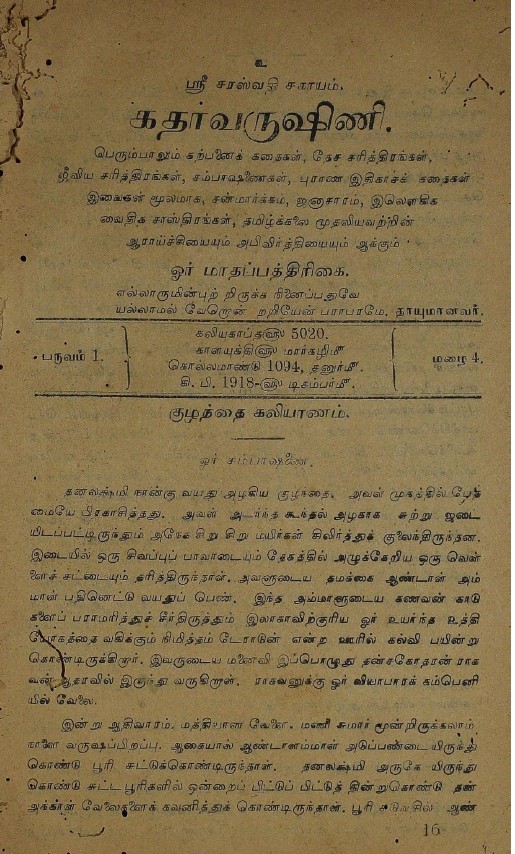 உ
ஸ்ரீ சரஸ்வதி சகாயம்.
கதர்வருஷிணி.
பெரும்பாலும் கற்பனைக் கதைகள், தேச சரித்திரங்கள்,
ஜீவிய சரித்திரங்கள், சம்பாஷணைகள், புராண இதிகாசக் கதைகள்
இவைகள் மூலமாக, சன்மார்க்கம், ஜனாசாரம், இலௌகிக
வைதிக சாஸ்திரங்கள், தமிழ்க்கலை முதலியவற்றின்
ஆராய்ச்சியையும் அபிவிர்த்தியையும் ஆக்கும்
ஓர் மாதப்பத்திரிகை.
எல்லாருமின்புற் றிருக்க நினைப்பதுவே
யல்லாமல் வேறொன் றறியேன் பராபரமே. தாயுமானவர்.
பருவம் 1.
கலியுகாப்தம்௵ 5020.
காளயுக்தி௵ மார்கழி௴
கொல்லமாண்டு 1094, தனுர்௴.
கி. பி. 1918-௵ டிசம்பர்௴.
மழை 4.
குழந்தை கலியாணம்.
ஓர் சம்பாஷணை.
தனலக்ஷ்மி நான்கு வயது அழகிய குழந்தை. அவள் முகத்தில் பேதை
மையே பிரகாசித்தது. அவள் அடர்ந்த கூந்தல் அழகாக சுற்று ஜடை
யிடப்பட்டிருந்தும் அநேக சிறு சிறு மயிர்கள் கிளிர்த்துக் குலைந்திருந்தன.
இடையில் ஒரு சிவப்புப் பாவாடையும் தேகத்தில் அழுக்கேறிய ஒரு வெள்
ளைச் சட்டையும் தரித்திருந்தாள். அவளுடைய தமக்கை ஆண்டாள் அம்
மாள் பதினெட்டு வயதுப் பெண். இந்த அம்மாளுடைய கணவன் காடு
களைப் பராமரித்துச் சீர்திருத்தும் இலாகாவிற்குரிய ஓர் உயர்ந்த உத்தி
யோகத்தை வகிக்கும் நிமித்தம் டேராடுன் என்ற ஊரில் கல்வி பயின்று
கொண்டிருக்கிறார். இவருடைய மனைவி இப்பொழுது தன்சகோதரன் ராக
வன் ஆதரவில் இருந்து வருகிறாள். ராகவனுக்கு ஓர் வியாபாரக் கம்பெனி
யில் வேலை.
இன்று ஆதிவாரம். மத்தியான வேளை. மணி சுமார் மூன்றிருக்கலாம்
நாளை வருஷப்பிறப்பு. ஆகையால் ஆண்டாளம்மாள் அடுப்பண்டை யிருந்து
கொண்டு பூரி சுட்டுக்கொண்டிருந்தாள். தனலக்ஷ்மி அருகே யிருந்து
கொண்டு சுட்ட பூரிகளில் ஒன்றைப் பிட்டுப் பிட்டுத் தின்றுகொண்டு தன்
அக்காள் வேலைகளைக் கவனித்துக் கொண்டிருந்தாள். பூரி சுடுவதில் ஆண்
16